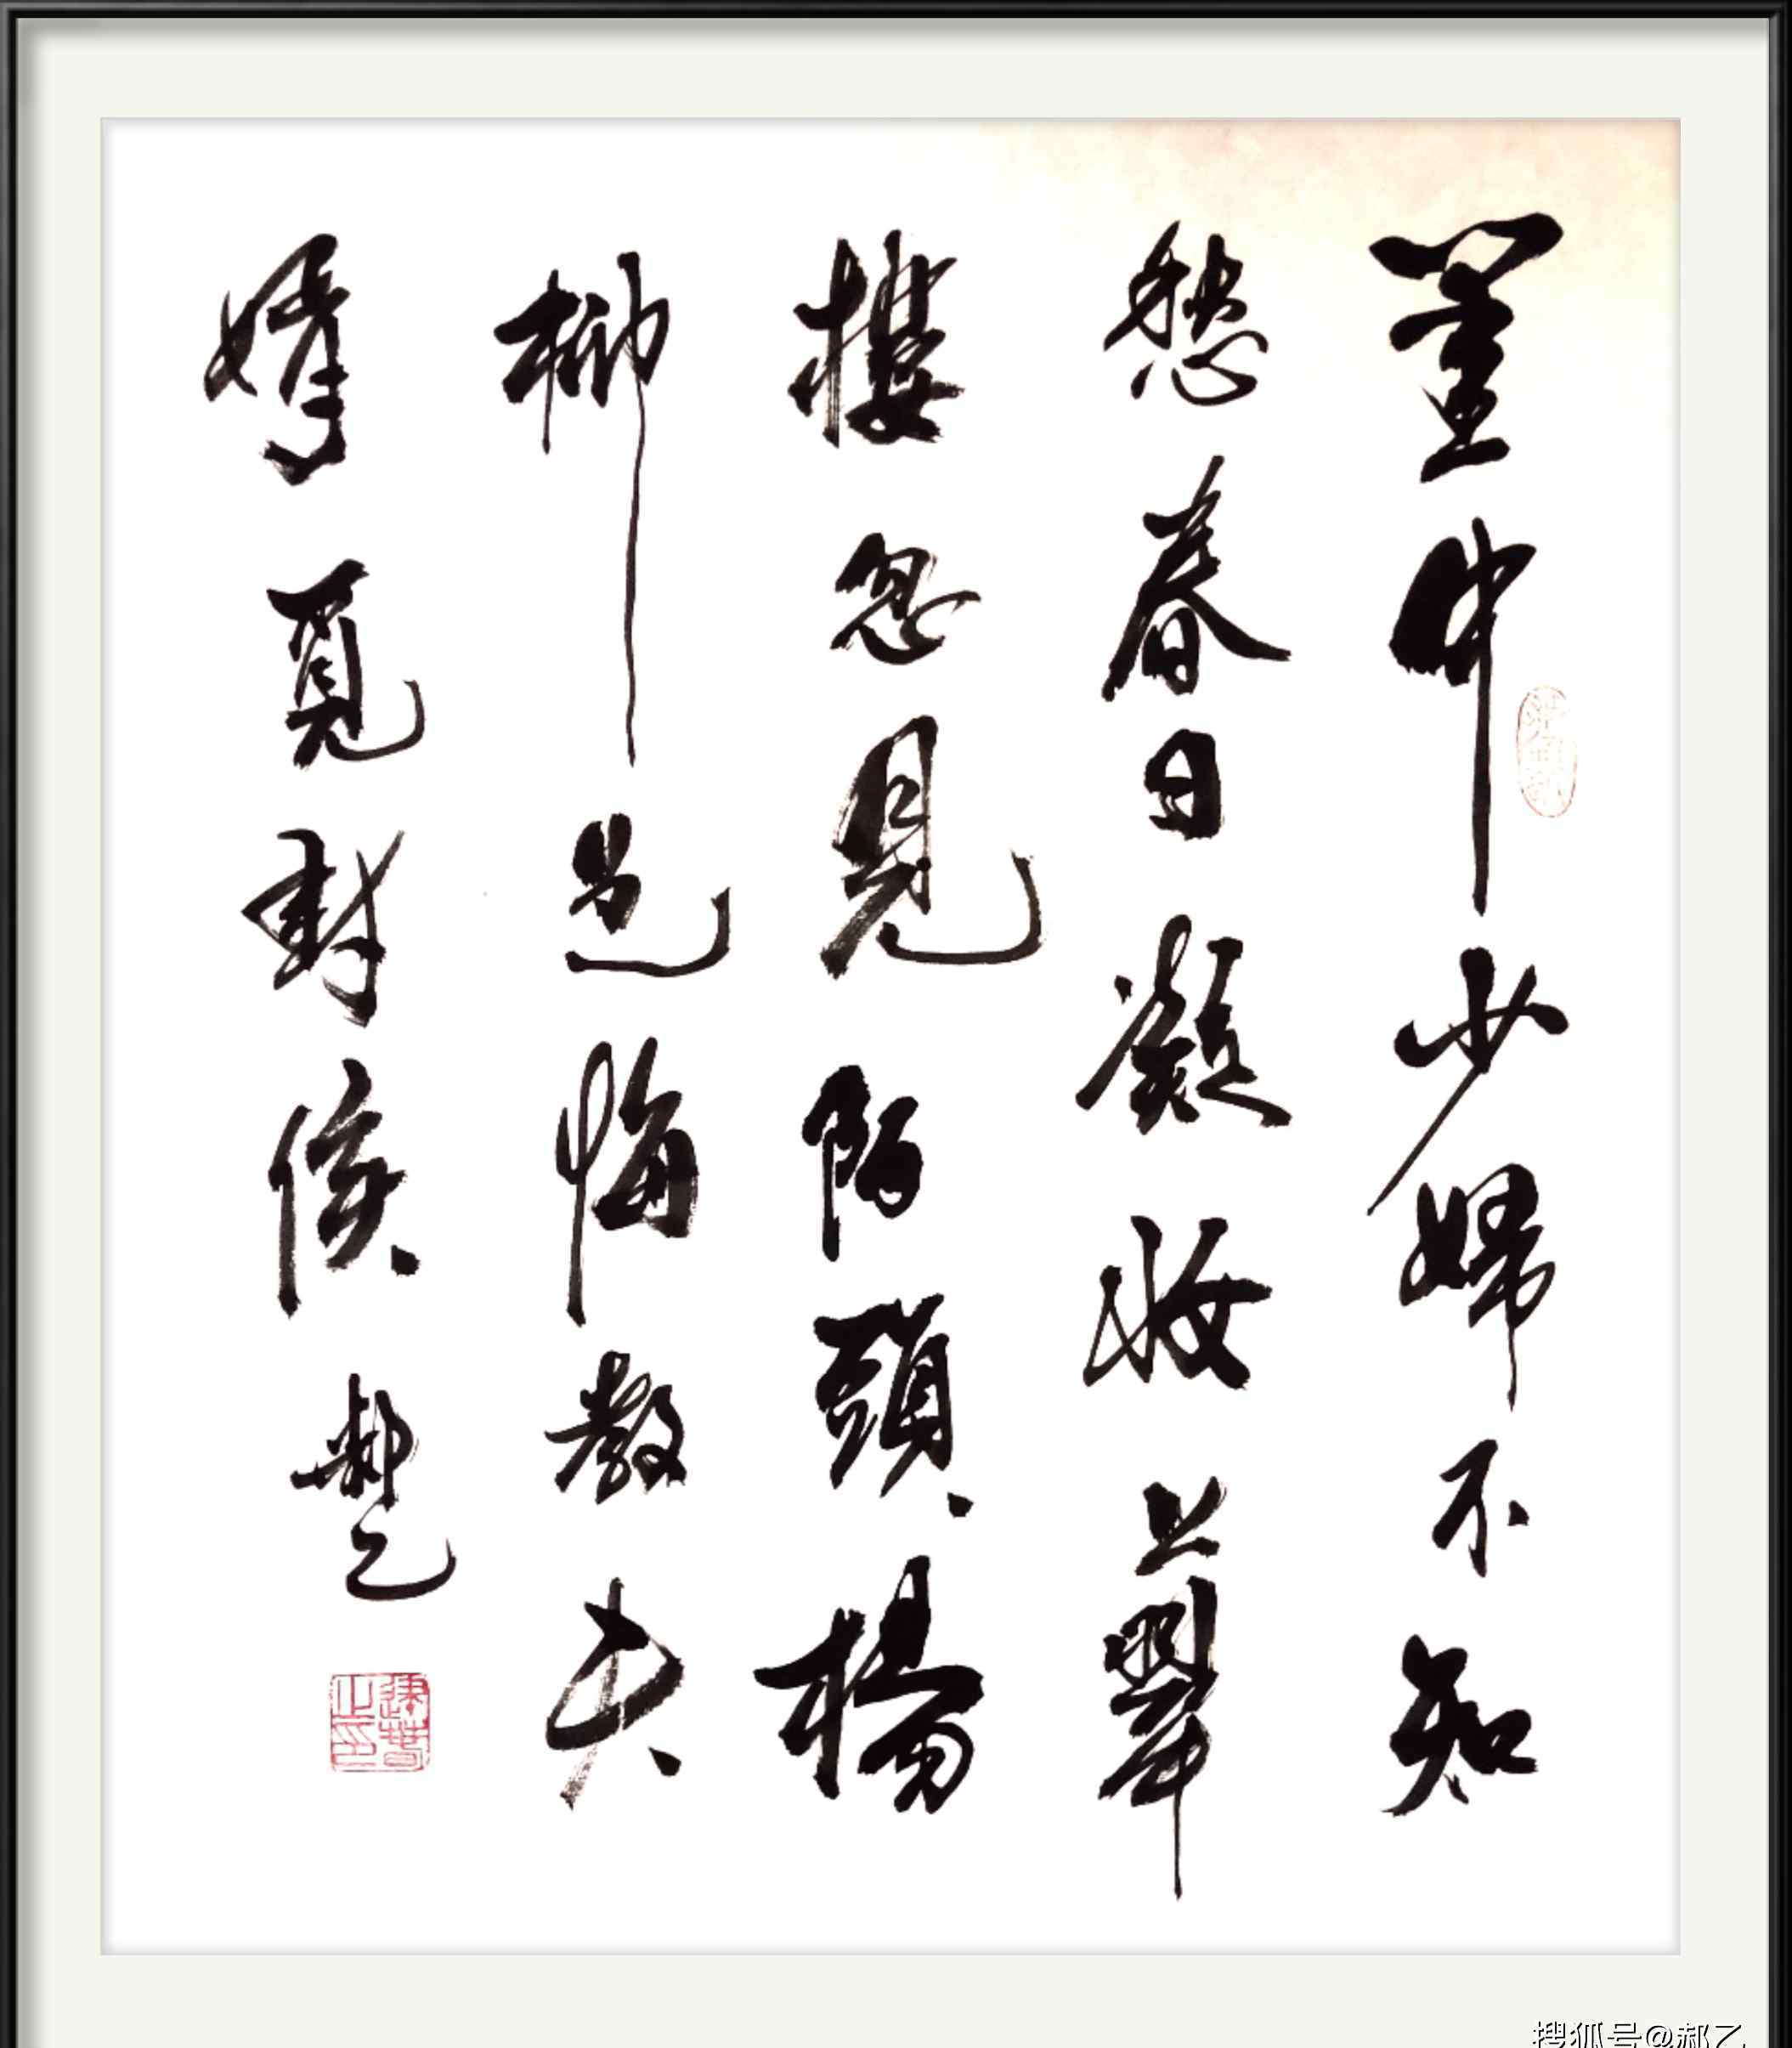 閨中少婦不知
愁春日凝妝上翠
樓忽見陌頭楊
柳色悔教夫
婿覓封侯 郝乙
搜狐号@郝乙